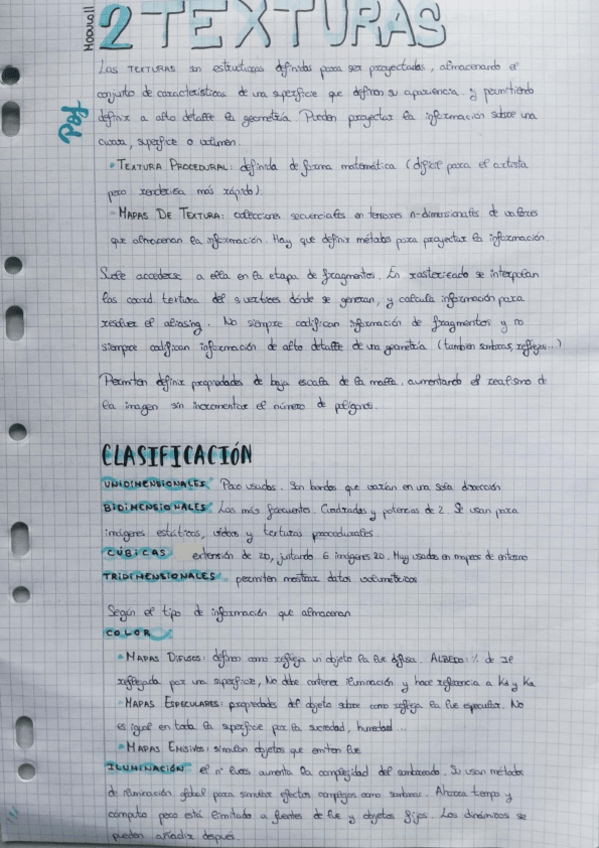 MÓDULO II
2 TEXTURAS
Las TEXTURAS son estructuras definidas para ser proyectadas, almacenando el
conjunto de características de una superficie que definen su apariencia y permitiendo
definir a alto detalle la geometría. Pueden proyectar la información sobre una
curva, superficie o volumen.
• TEXTURA PROCEDURAL: definida de forma matemática (difícil para el artista
pero renderiza más rápido).
- MAPAS DE TEXTURA: colecciones secuenciales en tensores n-dimensionales de valores
que almacenan la información. Hay que definir métodos para proyectar la información.
Suele accederse a ella en la etapa de fragmentos. En rasterizado se interpolan
las coord. textura del vertices dónde se generan, y calcula información para
resolver el aliasing. No siempre codifican información de fragmentos y no
siempre codifican información de alto detalle de una geometría (también sombras, reflejos...)
Permiten definir propiedades de baja escala de la malla, aumentando el realismo de
la imagen sin incrementar el número de polígonos.
CLASIFICACIÓN
UNIDIMENSIONALES Poco usadas. Son bordes que varían en una sola dirección
BIDIMENSIONALES Las más frecuentes. Cuadradas y potencias de 2. Se usan para
imágenes estáticas, vídeos y texturas procedurales.
CÚBICAS extensión de 2D, juntando 6 imágenes 2D. Muy usadas en mapas de entorno
TRIDIMENSIONALES permiten mostrar datos volumétricos
Según el tipo de información que almacenan
COLOR
• MAPAS DIFUSES: definen como refleja un objeto la luz difusa. ALBEDO: % de
reflejada por una superficie, No debe contener iluminación y hace referencia a Kd y Ka
- MAPAS ESPECULARES: propiedades del objeto sobre como refleja la luz especular. No
es igual en toda la superficie por la suciedad, humedad...
• MAPAS EMISIVES: simulan objetos que emiten luz
ILUMINACIÓN el nº luces aumenta la complejidad del sombreado. Se usan métodos
de iluminación global para simular efectos complejos como sombras. Ahorra tiempo y
cómputo pero está limitado a fuentes de luz y objetos fijos. Los dinámicos se
pueden añadir después.